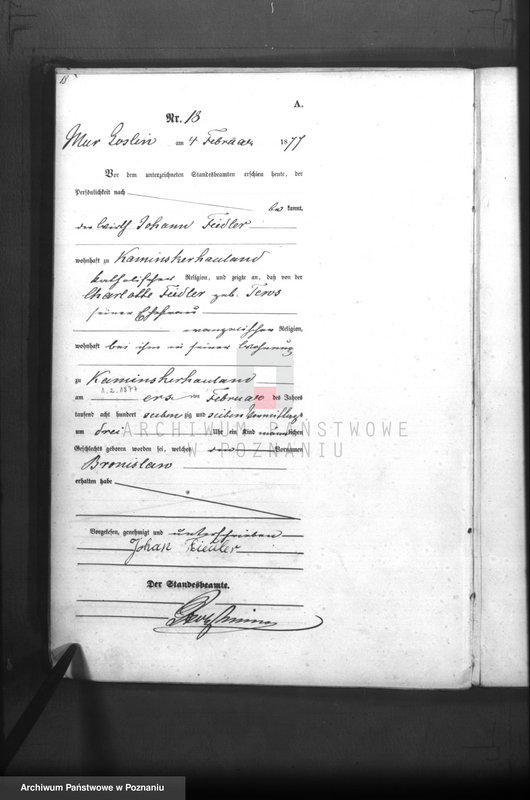 13
A.
Nr. 13
Mur Goslin am 4 Februar 1877
Vor dem unterzeichneten Standesbeamten erschien heute, der
Persönlichkeit nach
bekannt,
der Wirth Johann Fiedler
wohnhaft zu Kaminskerhauland
katholischer Religion, und zeigte an, daß von der
Charlotte Fiedler geb.
seiner Ehefrau
evangelischer Religion,
wohnhaft bei ihm in seiner Wohnung
zu Kaminskerhauland
1.2.1877
am ersten Februar des Jahres
tausend acht hundert siebenzig und sieben Vormittags
um drei Uhr ein Kind männlichen
Geschlechts geboren worden sei, welches den Vornamen
Bronislaw
erhalten habe
Vorgelesen, genehmigt und unterschrieben
Johan Fiedler
Der Standesbeamte.
ARCHIWUM PAŃSTWOWE
W POZNANIU
Archiwum Państwowe w Poznaniu